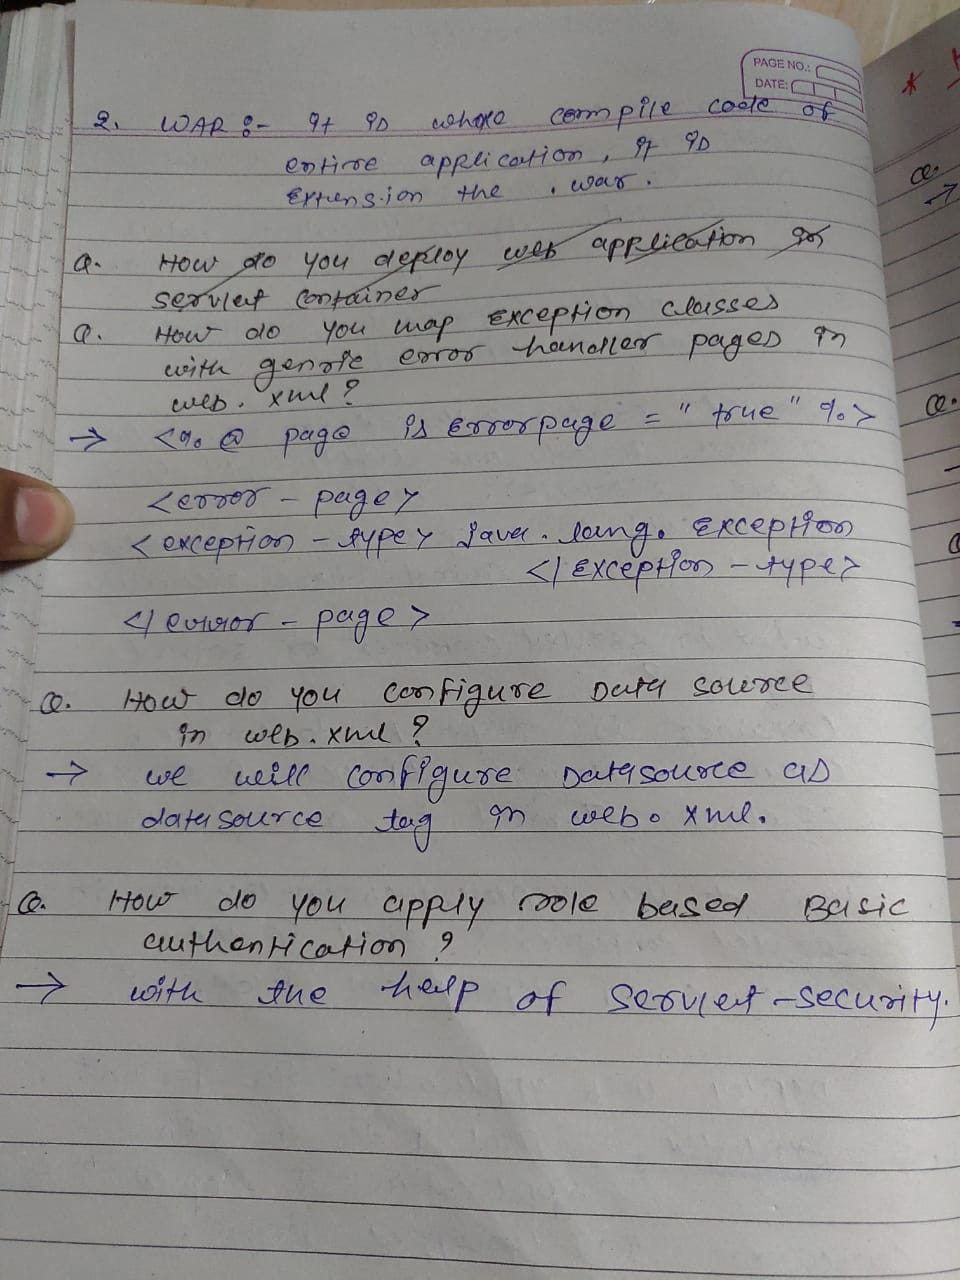 PAGE NO.:
DATE:
2. WAR :- It is whole compile code of
entire application, it is
Extension the .war.
Q. How do you deploy web application in
servlet container
Q. How do you map exception classes
with genric error handler pages in
web.xml?
→ <%@ page is Errorpage = "true" %>
<error-page>
<exception-type> java.lang.Exception
</Exception-type>
</error-page>
Q. How do you configure Data source
in web.xml?
→ we will configure Datasource as
datasource tag in web.xml.
Q. How do you apply role based Basic
authentication?
→ with the help of servlet-security.